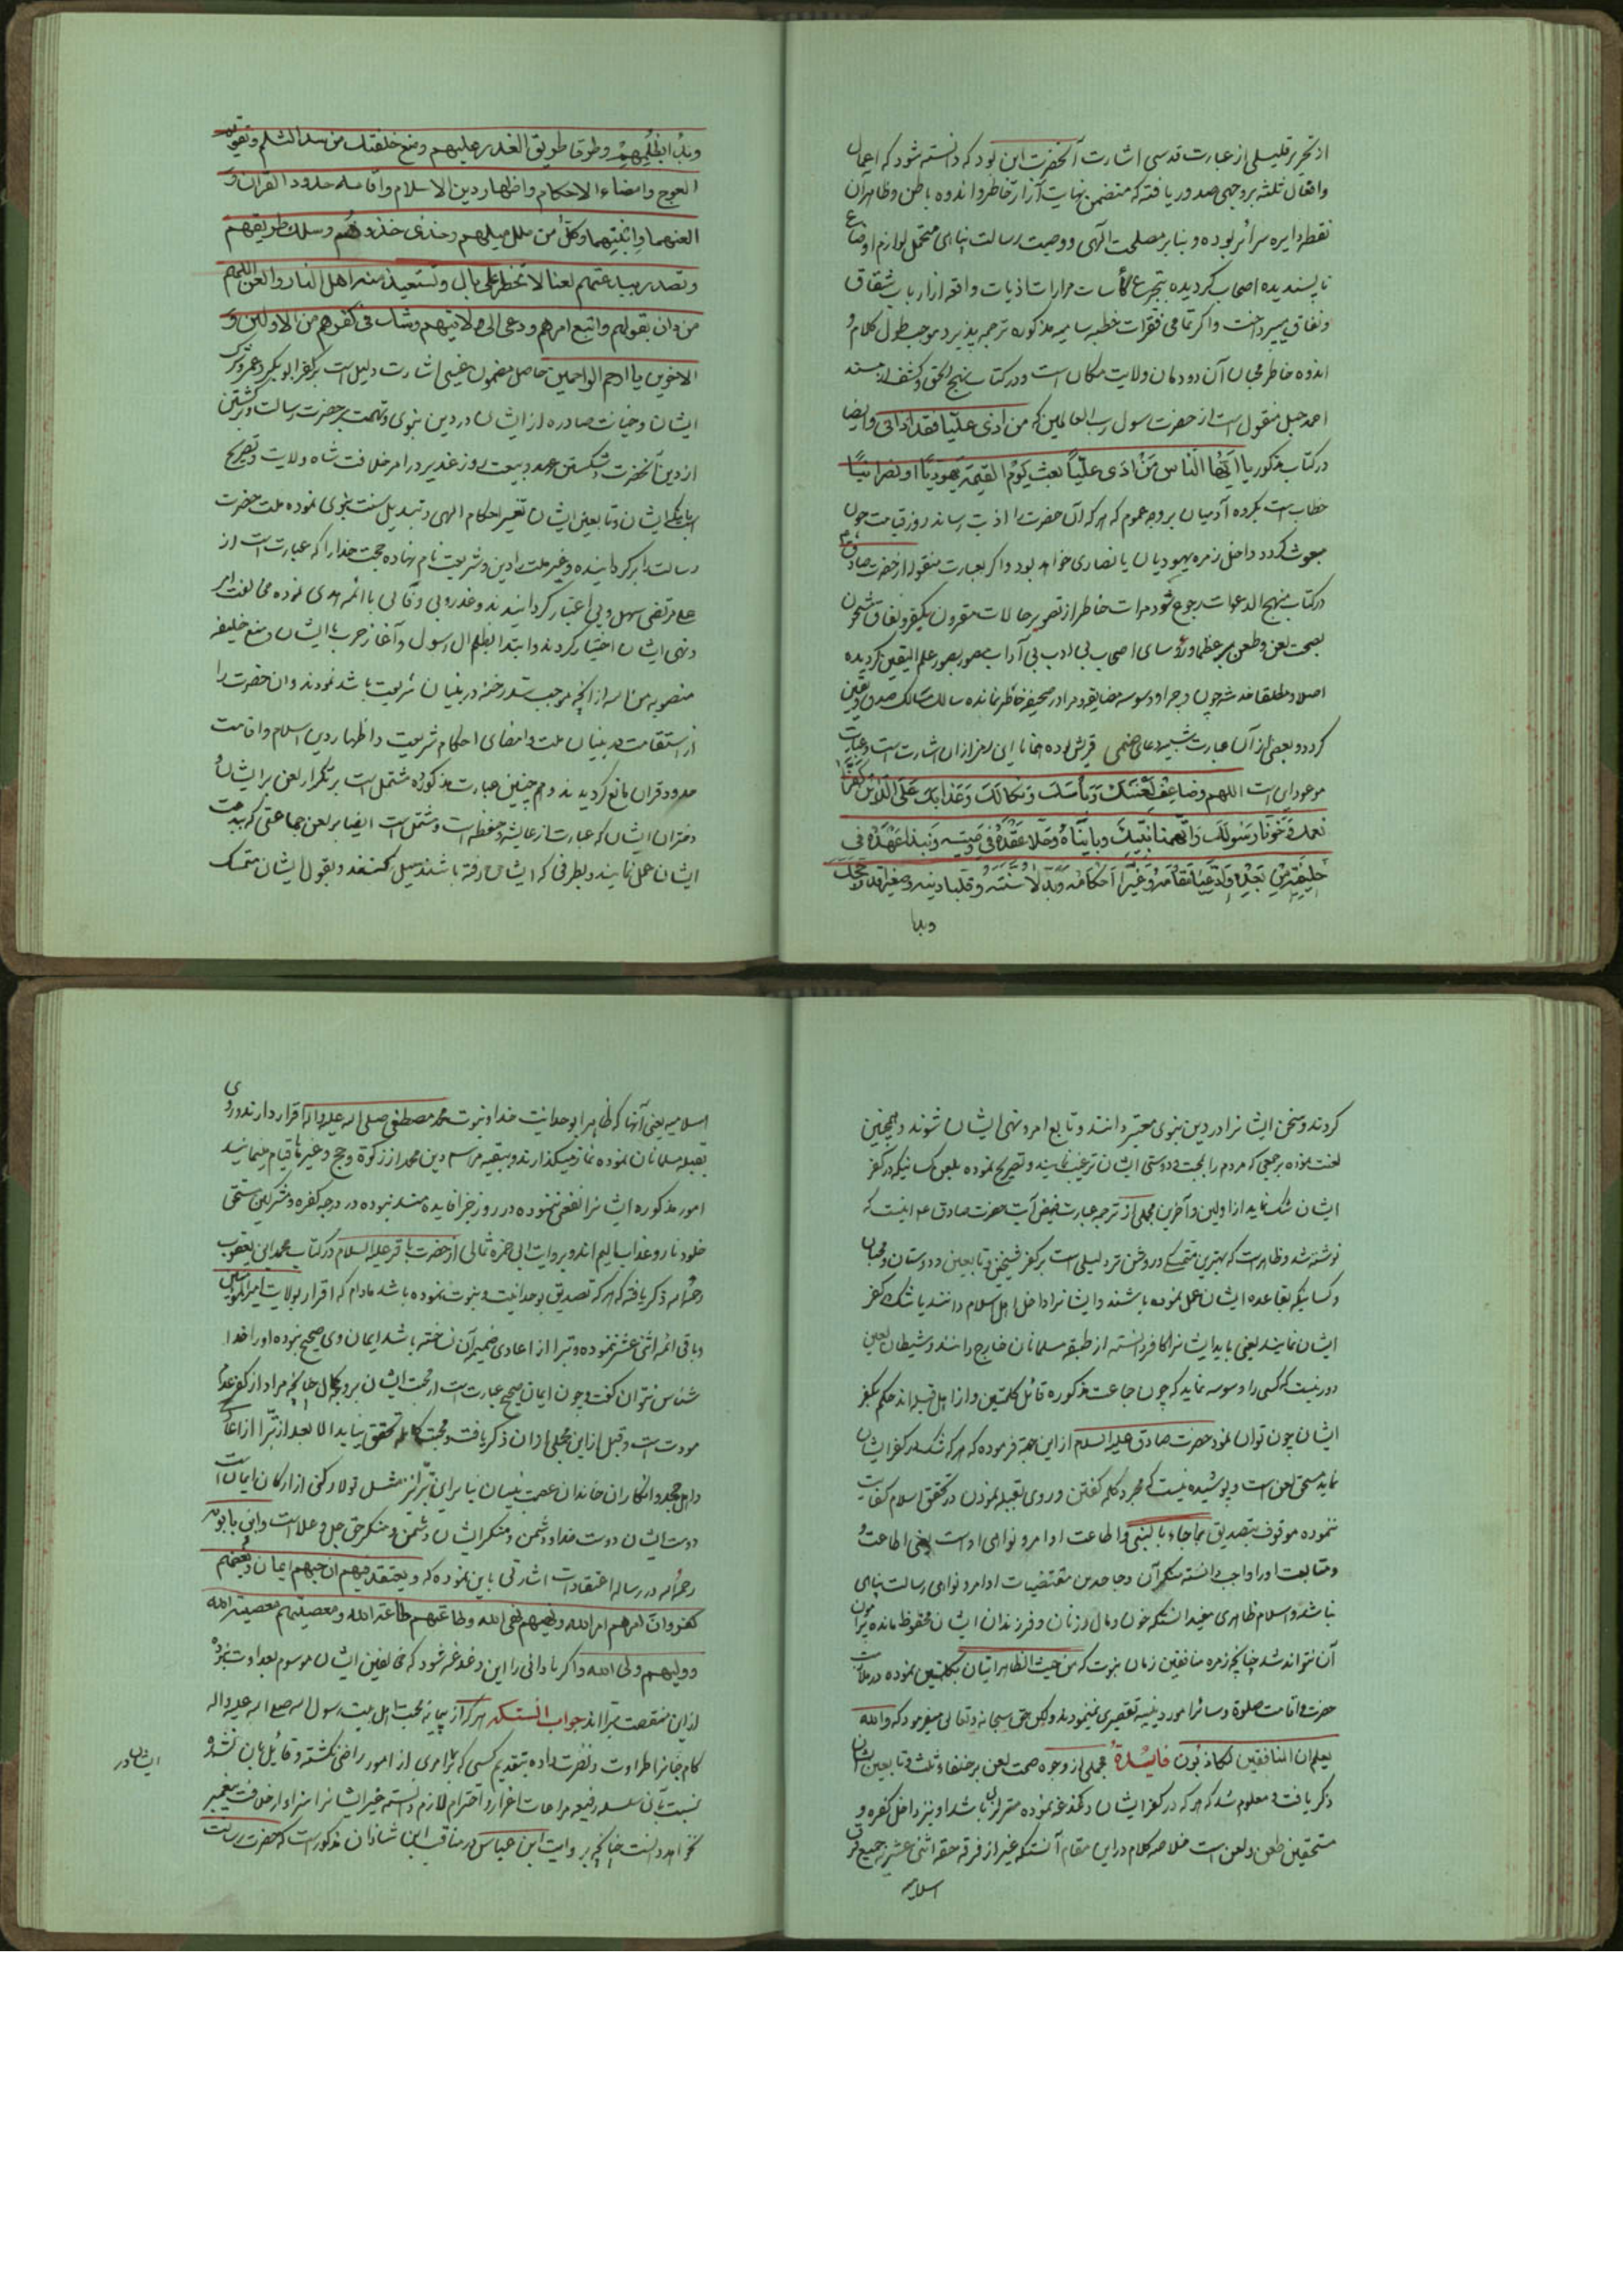 از تحریر قلیلی از عبارت قدسی اشارت آنحضرت این بود که دانسته شود که اعمال
وافعال ثلثه بر وجهی صدور یافته که متضمن نهایت آزار خاطر و اندوه باطن وظاهر آن
نقطه دایره سرائر بوده و بنا بر مصلحت الهی و وصیت رسالت پناهی متحمل لوازم اوضاع
ناپسندیده اصحاب کردیده بتجرع کأسات مرارات اذیات واقعه از ارباب شقاق
ونفاق میپرداخت واکر تمامی فقرات خطبه سامیه مذکوره ترجمه پذیرد موجب طول کلام و
اندوه خاطر محبان آن دودمان ولایت مکان است ودر کتاب نهج الحق وکشف از مسند
احمد حنبل منقول است از حضرت رسول رب العالمین که من اذی علیّا فقد اذانی وایضا
در کتاب مذکور یا ایّها النّاس مَنْ اذی علیّاً بعث یَومَ القیمة یهودیّا او نصرانیّا
خطاب است بکروه آدمیان بر وجه عموم که هر که آن حضرت را اذیت رساند روز قیامت چون
مبعوث کردد داخل زمره یهودیان یا نصاری خواهد بود واکر بعبارت منقوله از حضرت صادق ع م
در کتاب منهج الدعوات رجوع شود مرات خاطر از تصویر حالات مقرون بکفر ونفاق مشحون
بصحت لعن وطعن بر عظما ورؤسای اصحاب بی ادب بی آداب مصور بصور علم الیقین کردیده
اصلا ومطلقا خدشه چون وچرا ووسوسه مضایقه ومرا در صحیفه خاطر نمانده سالک مسالک صدق ویقین
کردد وبعضی از آن عبارت شبیه دعای صنمی قریش بوده همانا این رمز ازان اشارت است وعبارت
موعود این است اللهم وضاعف لَعْنتکَ وَبأسکَ وَنکالَکَ وَعَذابکَ عَلَی الّذین کَفَرا
نعمتک وَخَوّنا رَسُولَکَ وَاتّهمنا نبیّکَ وبایناهُ وَحَلّا عَقْدَهُ فی وَصیّته وَنبذا عَهْدَهُ فی
خلیفَتِه مِنْ بَعْدِه وَادّعَیا مَقامَهُ وَغَیّرا اَحْکامَهُ وَبَدّلا سُنّتَهُ وقلبا دینه وصغرا قدر حُجَجِکَ
وبدأ
وبدأ ابظُلمِهِمْ وطرقا طریق الغدر علیهم ومنع خلفتک من سد الثلم وتقویم
العوج وامضاء الاحکام واظهار دین الاسلام واقامة حدود القران وَ
العنهما وابنتیهما وکل من مال میلهم وحذی حذوهُم وسلک طریقهم
وتصدر ببدعتهم لعنا لا تخطر علی بال وتستعیذ منه اهل النار والعن اللهم
من دان بقولهم واتبع امرهم ودعی الی ولایتهم وشک فی کفرهم من الاولین وَ
الاخرین یا ارحم الراحمین حاصل مضمون غیبی اشارت دلیل است بر کفر ابوبکر وعمر وترک
ایشان وخیانت صادره از ایشان در دین نبوی وتهمت بر حضرت رسالت وبرکشتن
از دین آنحضرت وشکستن عهد وبیعت روز غدیر در امر خلافت شاه ولایت وتصریح
است بانکه ایشان وتابعین ایشان تغییر احکام الهی وتبدیل سنت نبوی نموده ملت حضرت
رسالت را برکردانیده وغیر ملت را دین وشریعت نام نهاده حجت خدا را که عبارت است از
علی مرتضی سهل وبی اعتبار کردانیدند وغدر وبی وفائی با ائمه هدی نموده مخالفت امر
ونهی ایشان اختیار کردند وابتدا بظلم ال رسول وآغاز حرب با ایشان ومنع خلیفه
منصوبه من الله از انچه موجب سد رخنه در بنیان شریعت باشد نمودند وان حضرت را
از استقامت در بنیان ملت وامضای احکام شریعت واظهار دین اسلام واقامت
حدود قران مانع کردیدند وهم چنین عبارت مذکوره مشتمل است بر تکرار لعن بر ایشان و
دختران ایشان که عبارت از عایشه وحفظه است ومشتمل است ایضا بر لعن جماعتی که ببدعت
ایشان عمل نمایند وبطرفی که ایشان رفته باشند میل کنند وبقول ایشان متمسک
کردند وسخن ایشانرا در دین نبوی معتبر دانند وتابع امر ونهی ایشان شوند وهمچنین
لعنت نموده بر جمعی که مردم را بمحبت ودوستی ایشان ترغیب نمایند وتصریح نموده بلعن کسانیکه در کفر
ایشان شک نماید از اولین وآخرین مجملی از ترجمه عبارت فیض آیت حضرت صادق ع م اینست که
نوشته شد وظاهر است که بهترین متمسکی وروشن تر دلیلی است بر کفر شیخین وتابعین ودوستان ومحبان
وکسانیکه بقاعده ایشان عمل نموده باشند وایشانرا داخل اهل اسلام دانند یا شک در کفر
ایشان نمایند یعنی باید ایشانرا کافر دانسته از طبقه مسلمانان خارج دانند وشیطان لعین
دور نیست که کسی را وسوسه نماید که چون جماعت مذکوره قائل کلمتین واز اهل قبله اند حکم بکفر
ایشان چون توان نمود حضرت صادق علیه السلام از این جهة فرموده که هر که شک در کفر ایشان
نماید مستحق لعن است وپوشیده نیست که مجرد کلمه کفتن وروی بقبله نمودن در تحقق اسلام کفایت
ننموده موقوف بتصدیق بما جاء بالنبی واطاعت اوامر ونواهی اوست یعنی اطاعت و
ومتابعت او را واجب دانسته منکر آن وجاحد من مقتضیات اوامر ونواهی رسالت پناهی
نباشد واسلام ظاهری مفید انستکه خون ومال وزنان وفرزندان ایشان محفوظ مانده پیرامون
آن نتوانند شد چنانچه زمره منافقین زمان نبوت که من حیث الظاهر اتیان بکلمتین نموده در ملازمت
حضرت واقامت صلوة وسائر امور دینیه تقصیری نمینمودند ولکن حق سبحانه وتعالی میفرمود که والله
یعلم ان المنافقین لکاذبُون فایدةٌ مجملی از وجوه صحت لعن بر خلفاء ثلث وتابعین ایشان
ذکر یافت ومعلوم شد که هر که در کفر ایشان دغدغه نموده متزلزل باشد او نیز داخل کفره و
مستحقین طعن ولعن است خلاصه کلام در این مقام آنستکه غیر از فرقه حقه اثنی عشریه جمیع فرق
اسلامیه
اسلامیه یعنی آنها که ظاهرا بوحدانیت خدا ونبوت محمد مصطفی صلی الله علیه واله اقرار دارند وروی
بقبله مسلمانان نموده نماز میکذارند وببقیه مراسم دین محمد از زکوة وحج وغیرها قیام مینمایند
امور مذکوره ایشانرا نفعی ننموده در روز جزا فایده مند نبوده در درجه کفره ومشرکین مستحق
خلود نار وعذاب الیم اند وبروایت ابی حمزه ثمالی از حضرت باقر علیه السلام در کتاب محمد ابن یعقوب
رحمه الله ذکر یافته که هر که تصدیق بوحدانیت ونبوت نموده باشد مادام که اقرار بولایت امیرالمؤمنین
وباقی ائمه اثنی عشر ننموده وتبرا از اعادی ضمیمه آن نساخته باشد ایمان وی صحیح نبوده او را خدا
شناس نتوان کفت وچون ایمان صحیح عبارت است از محبت ایشان بر وجه کمال چنانچه مراد از کفر عدم
مودت است وقبل از این مجملی ازان ذکر یافت ومحبت کامله تحقق نیابد الا بعد از تبرّا از اعدا
واهل جحد وانکار ان خاندان عصمت بنیان بنا بر این تبرّا نیز مثل تولا رکنی از ارکان ایمان است
دوست ایشان دوست خدا ودشمن ومنکر ایشان دشمن ومنکر حق جل وعلا است وابن بابویه
رحمه الله در رساله اعتقادات اشارتی باین نموده که ویعتقد فیهم ان حبهم ایمان وبغضهم
کفر وان امرهم امر الله ونهیهم نهی الله وطاعتهم طاعة الله ومعصیتهم معصیة الله
وولیهم ولی الله واکر نادانی را این دغدغه شود که مخالفین ایشان موسوم بعداوت نبوده
از این منقصت مبرا اند جواب انستکه هر که از پیمانه محبت اهل بیت رسول الله صلی الله علیه واله
کام جانرا طراوت ونضرت داده بتقدیم کسی که بر امری از امور راضی نکشته وقائل بان نشده
نسبت بآن سلسله رفیعه مراعات اعزاز واحترام لازم دانسته غیر ایشانرا سزاوار خلافت پیغمبر
ایشان در
نخواهد دانست چنانچه بروایت ابن عباس در مناقب ابن شاذان مذکور است که حضرت رسالت